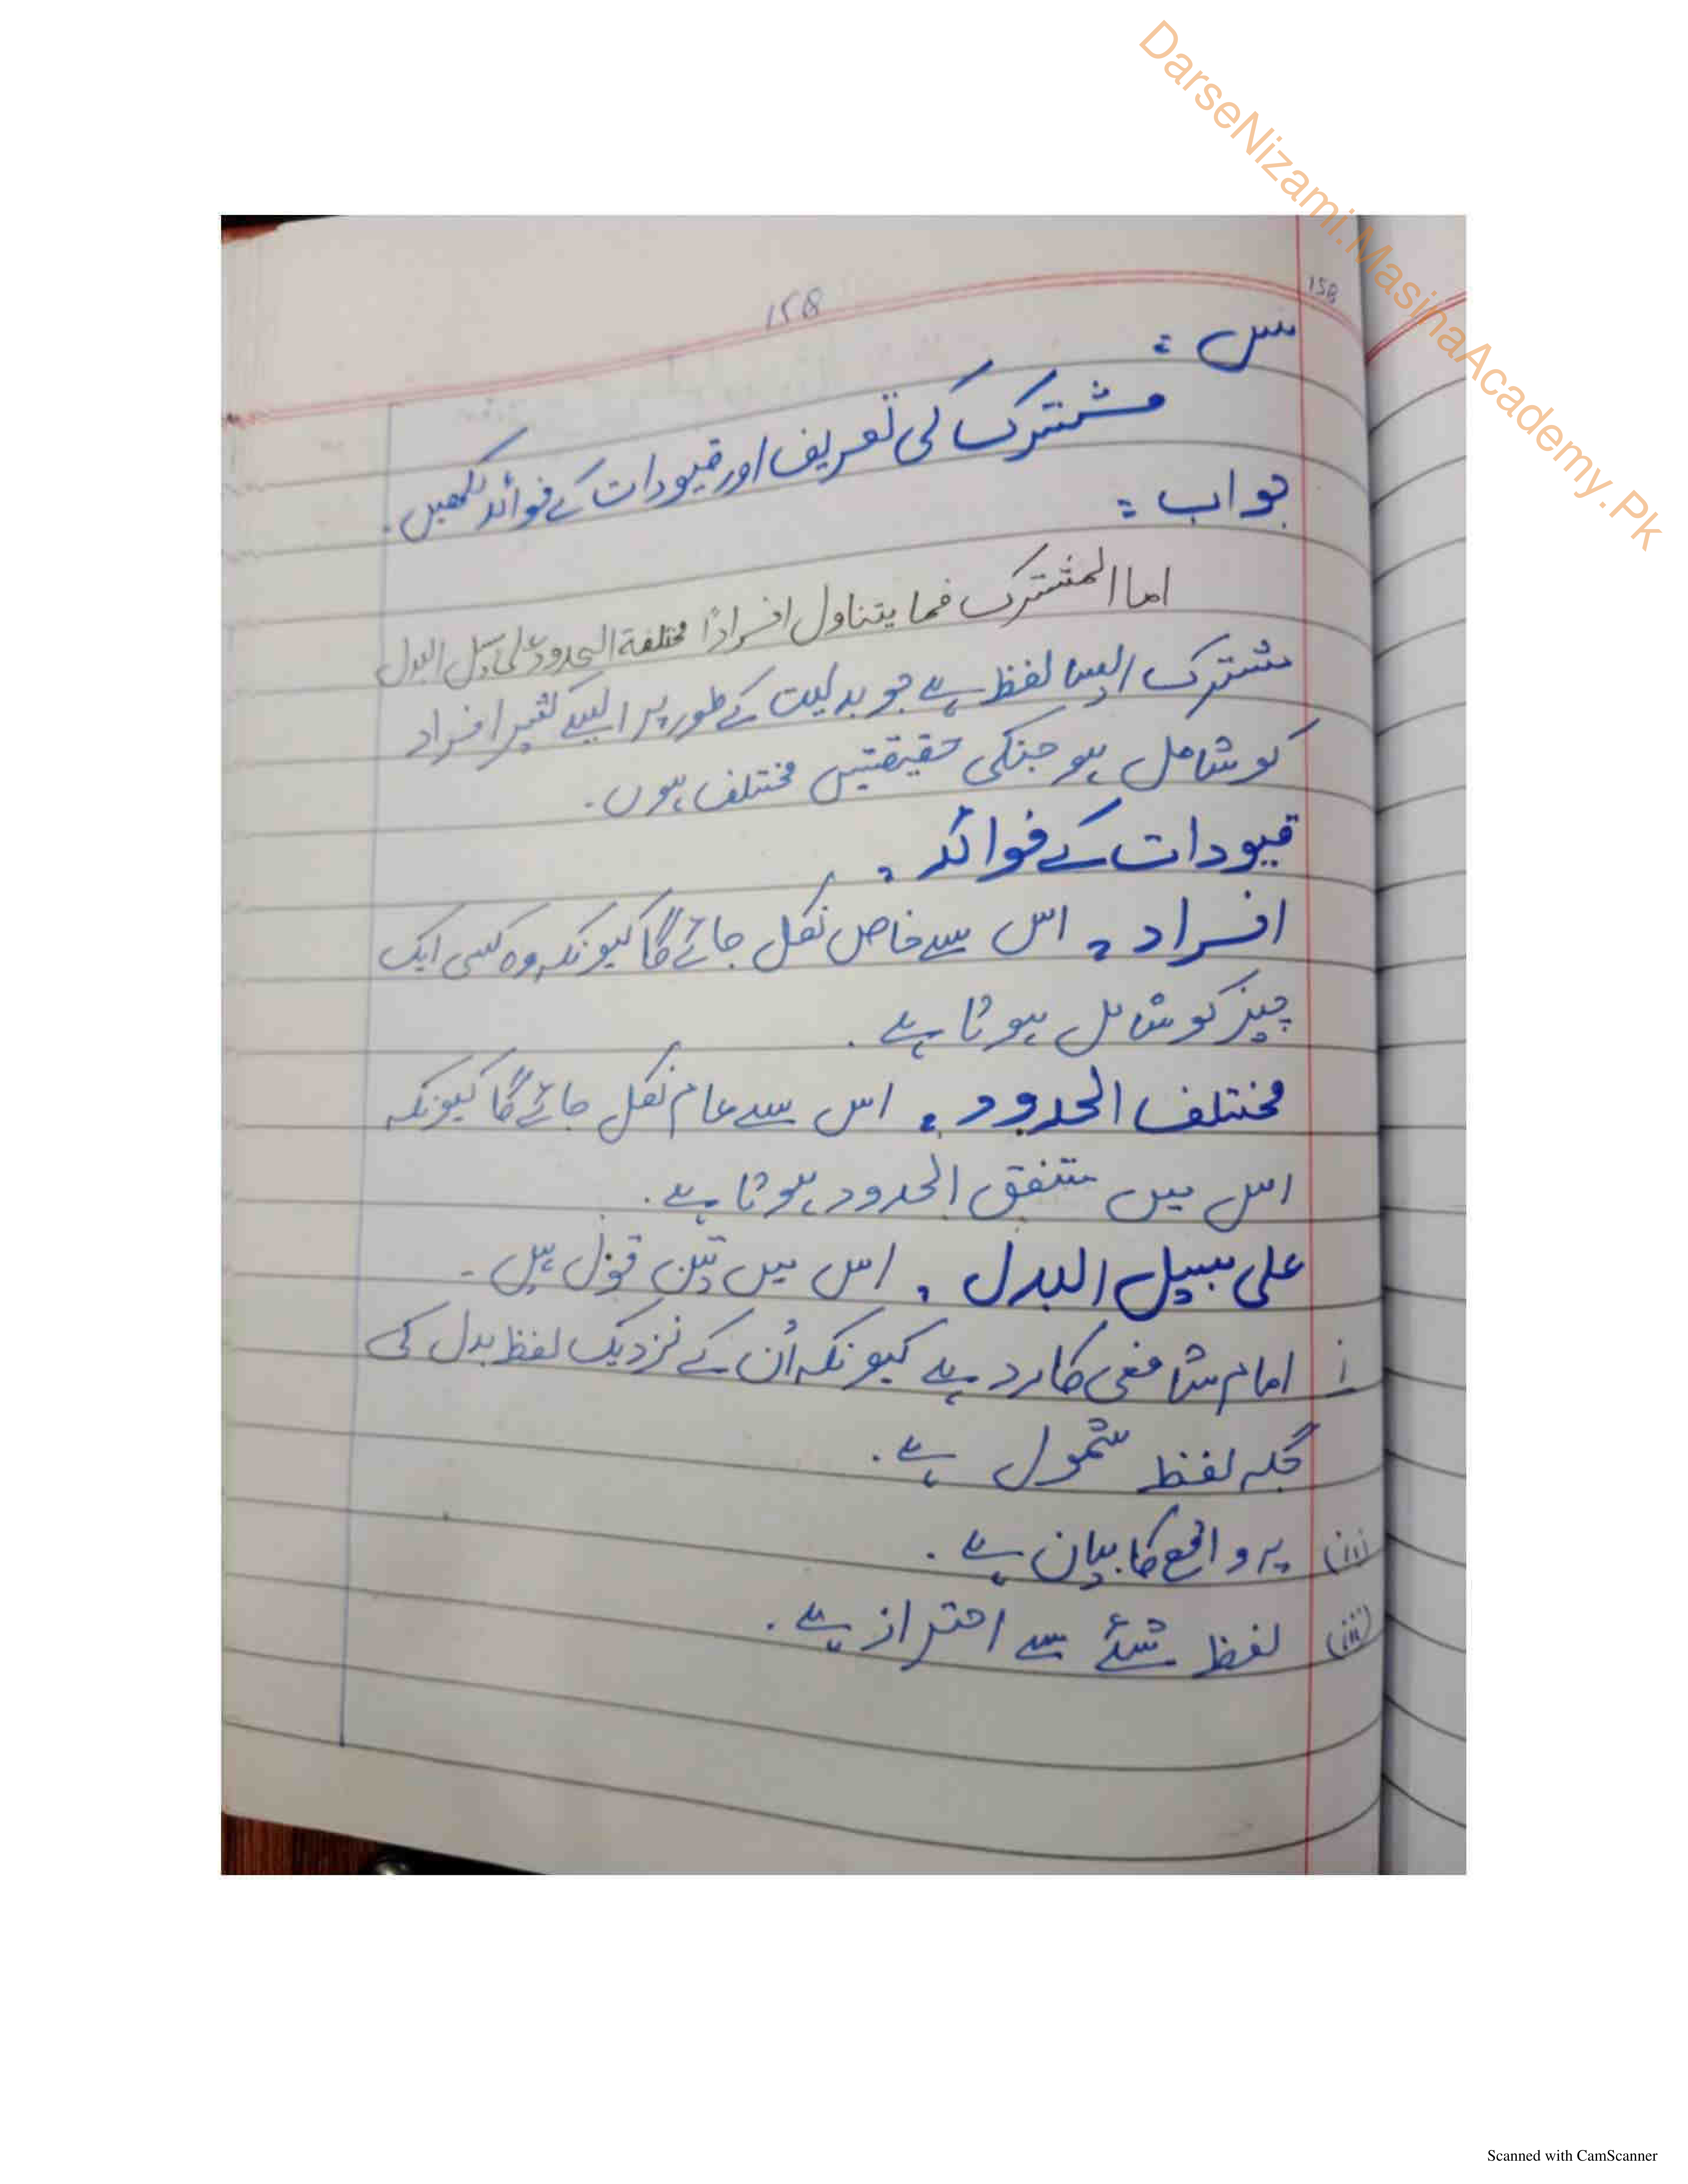 DarseNizami.MasihaAcademy.Pk
158
158
س :
مشترک کی تعریف اور قیودات کے فوائد لکھیں۔
جواب :
اما المشترک فما یتناول افرادًا مختلفة الحدود علی سبیل البدل
مشترک ایسا لفظ ہے جو بدلیت کے طور پر ایسے کثیر افراد
کو شامل ہو جنکی حقیقتیں مختلف ہوں۔
قیودات کے فوائد :
افراد : اس سے خاص نکل جائے گا کیونکہ وہ کسی ایک
چیز کو شامل ہوتا ہے۔
مختلف الحدود : اس سے عام نکل جائے گا کیونکہ
اس میں متفق الحدود ہوتا ہے۔
علی سبیل البدل : اس میں تین قول ہیں۔
i امام شافعی کا رد ہے کیونکہ اُن کے نزدیک لفظ بدل کی
جگہ لفظ شمول ہے۔
(ii) یہ واقع کا بیان ہے۔
(iii) لفظ شئے سے احتراز ہے۔
Scanned with CamScanner